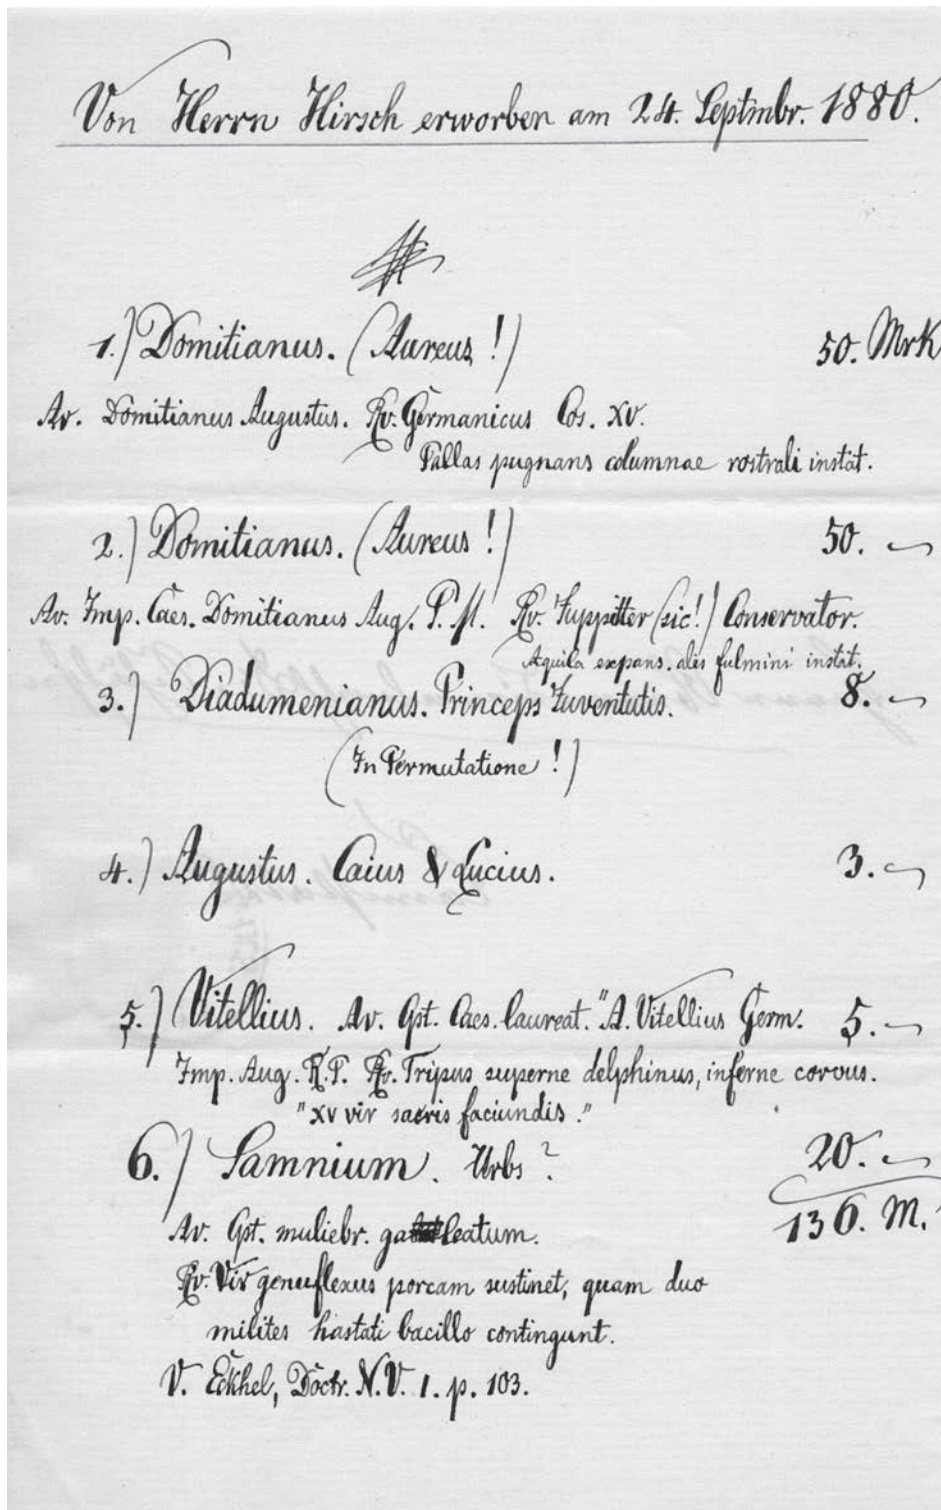 Von Herrn Hirsch erworben am 24. Septmbr. 1880.
1.) Domitianus. (Aureus!) 50. Mrk
Av. Domitianus Augustus. Rv. Germanicus Cos. XV.
Pallas pugnans columnae rostrali instat.
2.) Domitianus. (Aureus!) 50. -
Av. Imp. Caes. Domitianus Aug. P. M. Rv. Juppitter (sic!) Conservator.
Aquila expans. alis fulmini instat.
3.) Diadumenianus. Princeps Juventutis. 8. -
(In Permutatione!)
4.) Augustus. Caius & Lucius. 3. -
5.) Vitellius. Av. Cpt. Caes. laureat. "A. Vitellius Germ. 5. -
Imp. Aug. P. Rv. Tripus superne delphinus, inferne corvus.
"XV vir sacris faciundis."
6.) Samnium. Urbs? 20. -
136. M.
Av. Cpt. muliebr. galeatum.
Rv. Vir genuflexus porcam sustinet, quam duo
milites hastati bacillo contingunt.
V. Eckhel, Doctr. N. V. 1. p. 103.